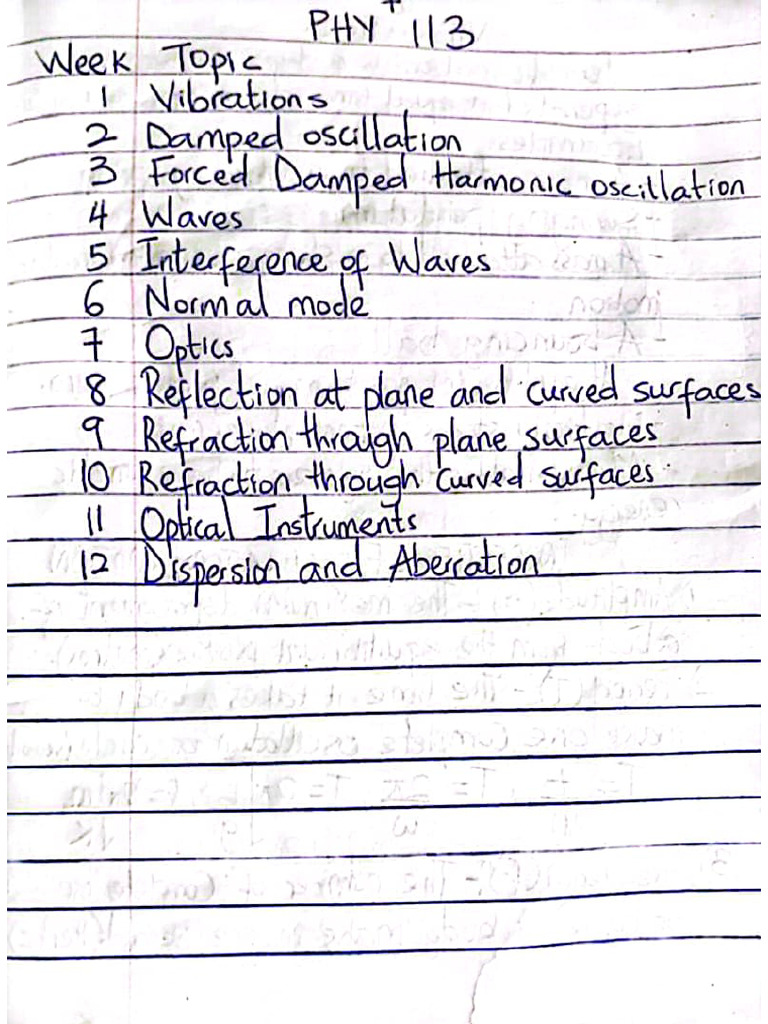 PHY 113
Week Topic
1 Vibrations
2 Damped oscillation
3 Forced Damped Harmonic oscillation
4 Waves
5 Interference of Waves
6 Normal mode
7 Optics
8 Reflection at plane and curved surfaces
9 Refraction through plane surfaces
10 Refraction through curved surfaces
11 Optical Instruments
12 Dispersion and Aberration